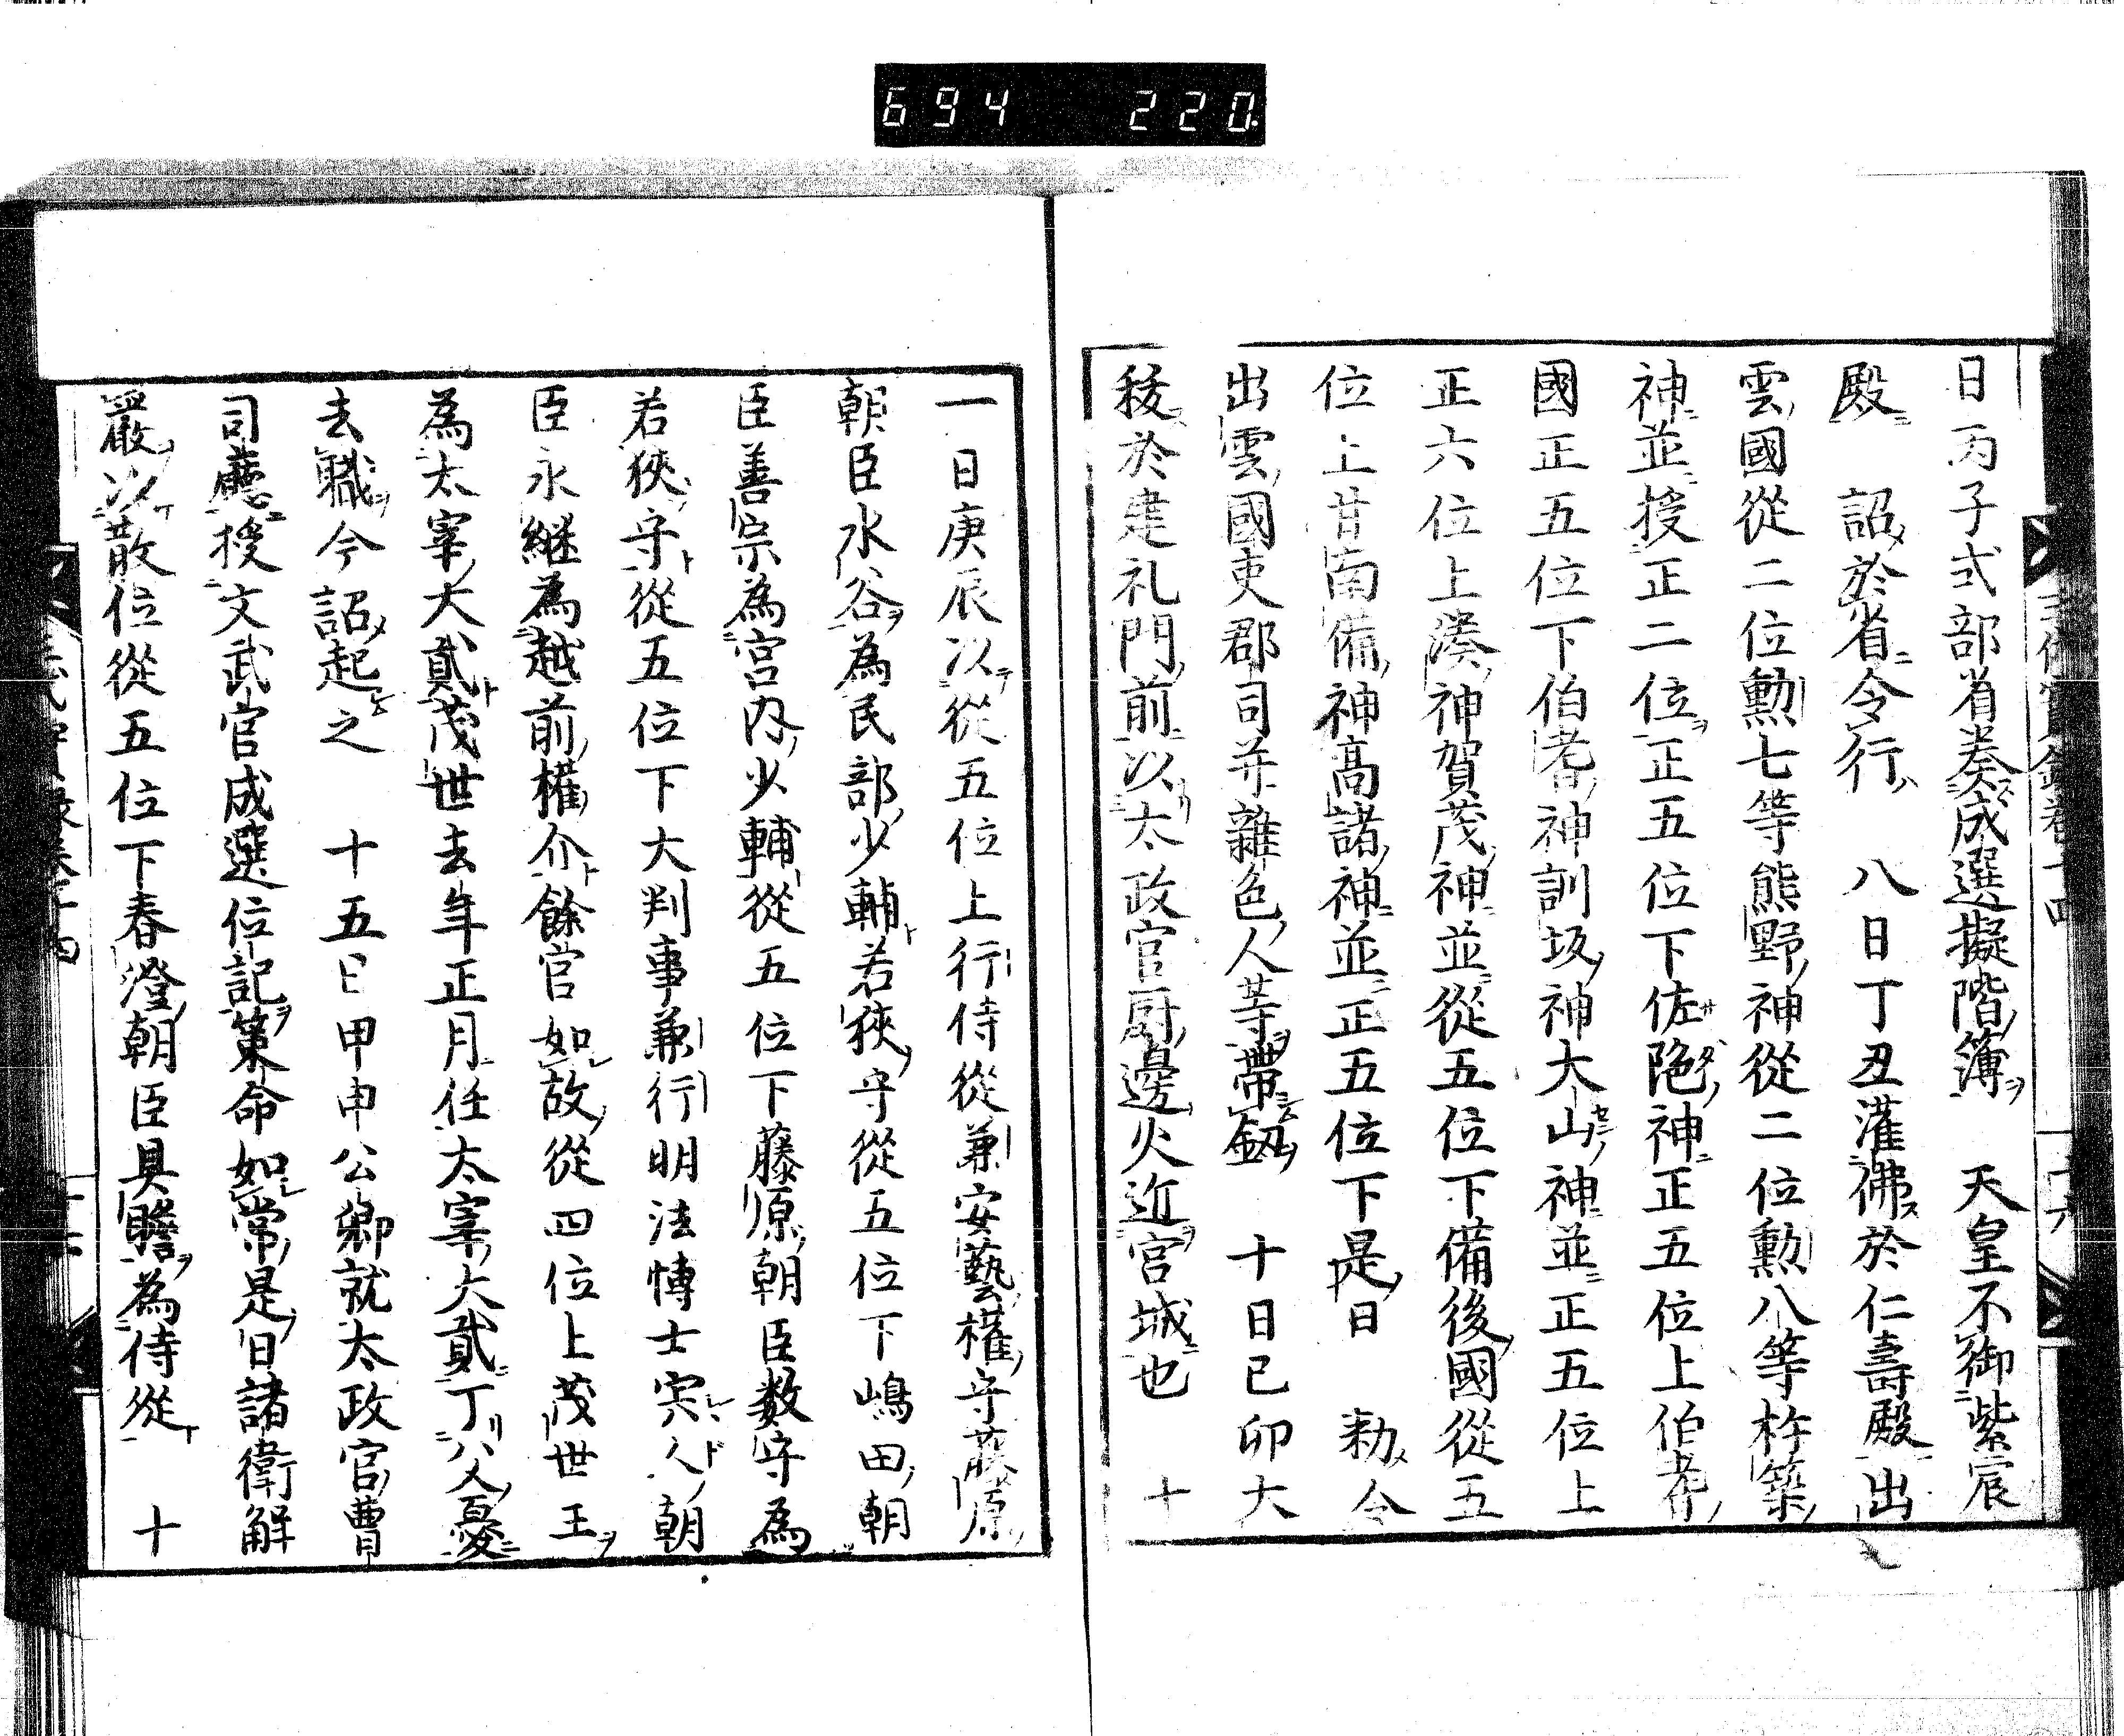 694 220
日丙子式部省奏成選擬階簿 天皇不御紫宸
殿 詔於省令行 八日丁丑灌佛於仁壽殿出
雲國從二位勳七等熊野神從二位勳八等杵築
神並授正二位正五位下佐陁神正五位上伯耆
國正五位下伯耆神訓坂神大山神並正五位上
正六位上湊神賀茂神並從五位下備後國從五
位上甘南備神高諸神並正五位下是日 勑令
出雲國吏郡司并雜色人等帶釼 十日己卯大
秡於建礼門前以太政官厨邊火近宮城也 十
一日庚辰以從五位上行侍從兼安藝權守藤原
朝臣水谷為民部少輔若狹守從五位下嶋田朝
臣善宗為宮内少輔從五位下藤原朝臣数守為
若狹守從五位下大判事兼行明法博士宍人朝
臣永継為越前權介餘官如故從四位上茂世王
為太宰大貳茂世去年正月任太宰大貳丁父憂
去職今詔起之 十五日甲申公卿就太政官曹
司廳授文武官成選位記策命如常是日諸衛解
嚴以散位從五位下春澄朝臣具瞻為侍從 十